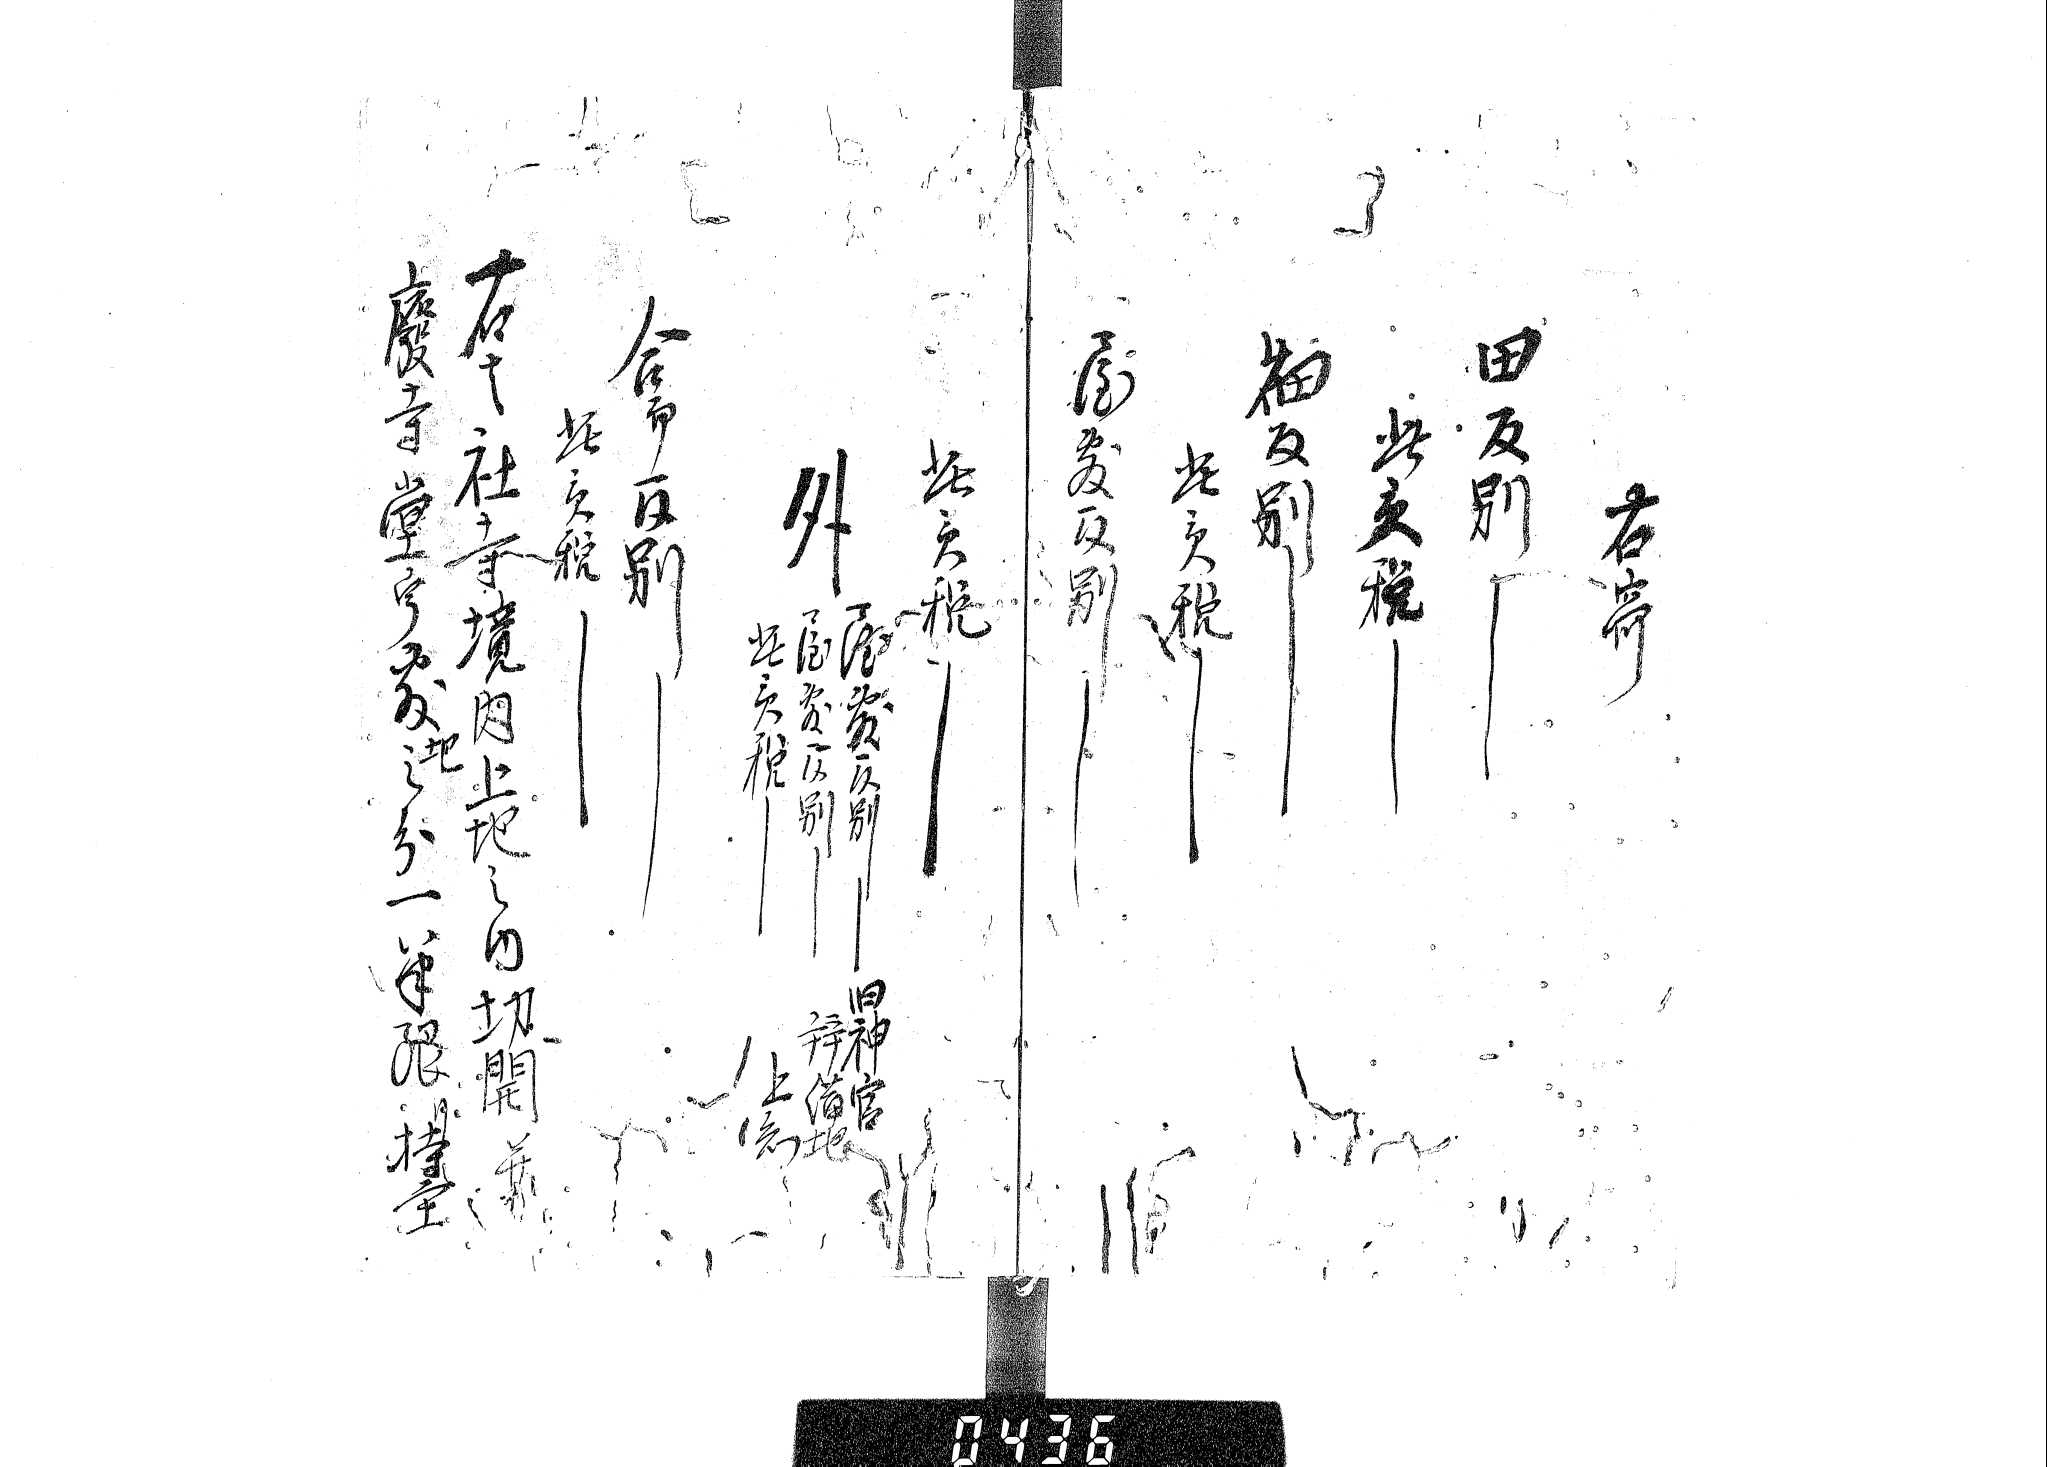 右寄
田反別
此貢税
畑反別
此貢税
屋敷反別
此貢税
外
屋敷反別 旧神官
屋敷反別 拝借地
此貢税 上納
合反別
此貢税
右之社寺境内上地之内切開
廃寺堂宇敷地之分一筆限持主
0436